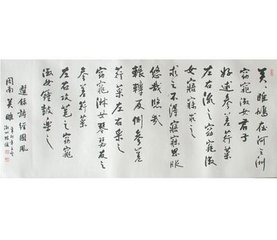 关雎鸠在河之洲
窈窕淑女君子
好逑参差荇菜
左右流之窈窕淑
女寤寐求之
求之不得寤寐思服
悠哉悠哉
輾轉反側参差
荇菜左右采之
窈窕淑女琴瑟友之
参差荇菜
左右芼之窈窕
淑女鐘鼓樂之
選錄詩經國風
周南关雎